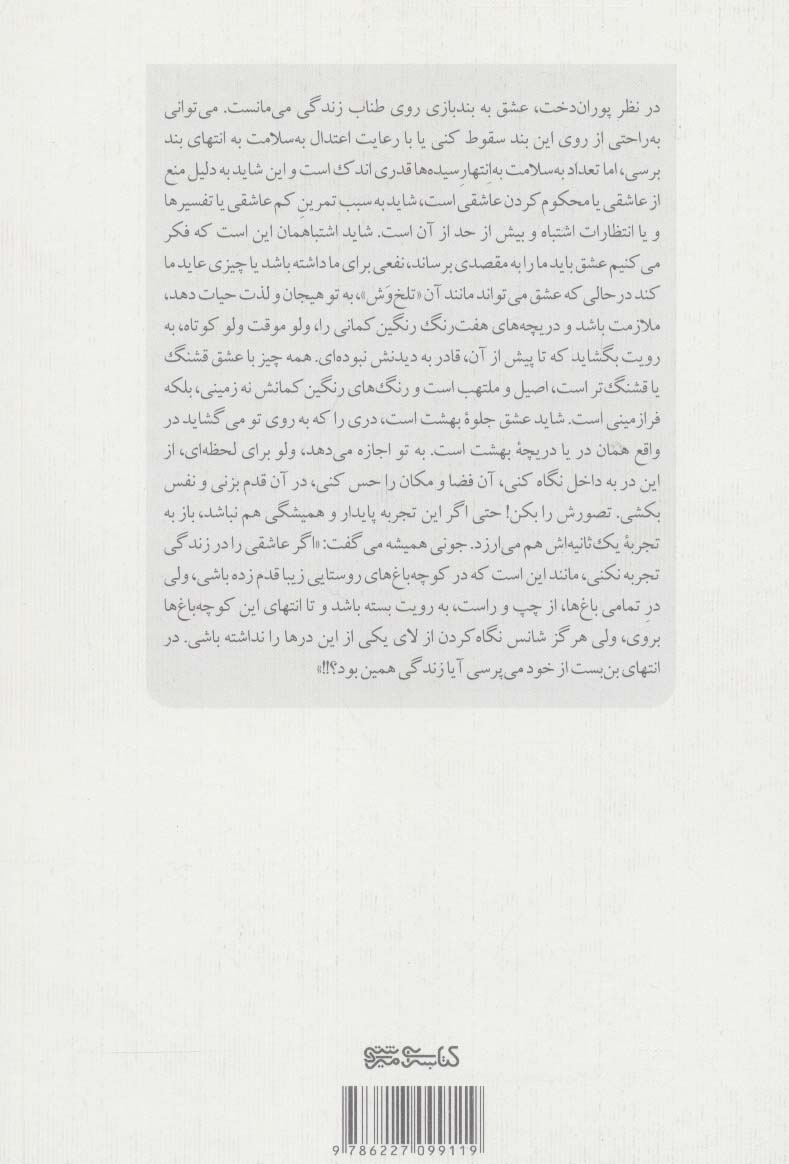 در نظر پوران‌دخت، عشق به بندبازی روی طناب زندگی می‌مانست. می‌توانی
به‌راحتی از روی این بند سقوط کنی یا با رعایت اعتدال به‌سلامت به انتهای بند
برسی، اما تعداد به‌سلامت به‌اِنتهارسیده‌ها قدری اندک است و این شاید به دلیل منع
از عاشقی یا محکوم کردن عاشقی است، شاید به سبب تمرینِ کم عاشقی یا تفسیرها
و یا انتظارات اشتباه و بیش از حد از آن است. شاید اشتباهمان این است که فکر
می‌کنیم عشق باید ما را به مقصدی برساند، نفعی برای ما داشته باشد یا چیزی عاید ما
کند در حالی که عشق می‌تواند مانند آن «تلخ‌وَش»، به تو هیجان و لذت حیات دهد،
ملازمت باشد و دریچه‌های هفت‌رنگ رنگین کمانی را، ولو موقت ولو کوتاه، به
رویت بگشاید که تا پیش از آن، قادر به دیدنش نبوده‌ای. همه چیز با عشق قشنگ
یا قشنگ‌تر است، اصیل و ملتهب است و رنگ‌های رنگین کمانش نه زمینی، بلکه
فرازمینی است. شاید عشق جلوهٔ بهشت است، دری را که به روی تو می‌گشاید در
واقع همان در یا دریچهٔ بهشت است. به تو اجازه می‌دهد، ولو برای لحظه‌ای، از
این در به داخل نگاه کنی، آن فضا و مکان را حس کنی، در آن قدم بزنی و نفس
بکشی. تصورش را بکن! حتی اگر این تجربه پایدار و همیشگی هم نباشد، باز به
تجربهٔ یک‌ثانیه‌اش هم می‌ارزد. جونی همیشه می‌گفت: «اگر عاشقی را در زندگی
تجربه نکنی، مانند این است که در کوچه‌باغ‌های روستایی زیبا قدم زده باشی، ولی
درِ تمامی باغ‌ها، از چپ و راست، به رویت بسته باشد و تا انتهای این کوچه‌باغ‌ها
بروی، ولی هرگز شانس نگاه‌کردن از لای یکی از این درها را نداشته باشی. در
انتهای بن‌بست از خود می‌پرسی آیا زندگی همین بود؟!!»
کتابسرای میردشتی
9 786227 099119